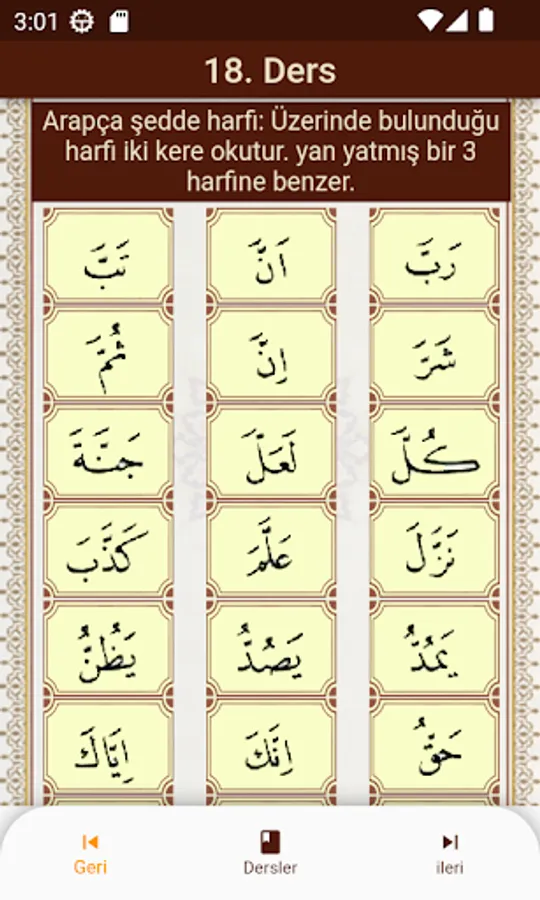 3:01
18. Ders
Arapça şedde harfi: Üzerinde bulunduğu
harfi iki kere okutur. yan yatmış bir 3
harfine benzer.
رَبَّ اَنَّ تَبَّ
شَرَّ اِنَّ ثُمَّ
كُلَّ لَعَلَّ جَنَّةَ
نَزَّلَ عَلَّمَ كَذَّبَ
يَمُدُّ يَصُدُّ يَظُنُّ
حَقُّ اِنَّكَ اِيَّاكَ
Geri Dersler ileri